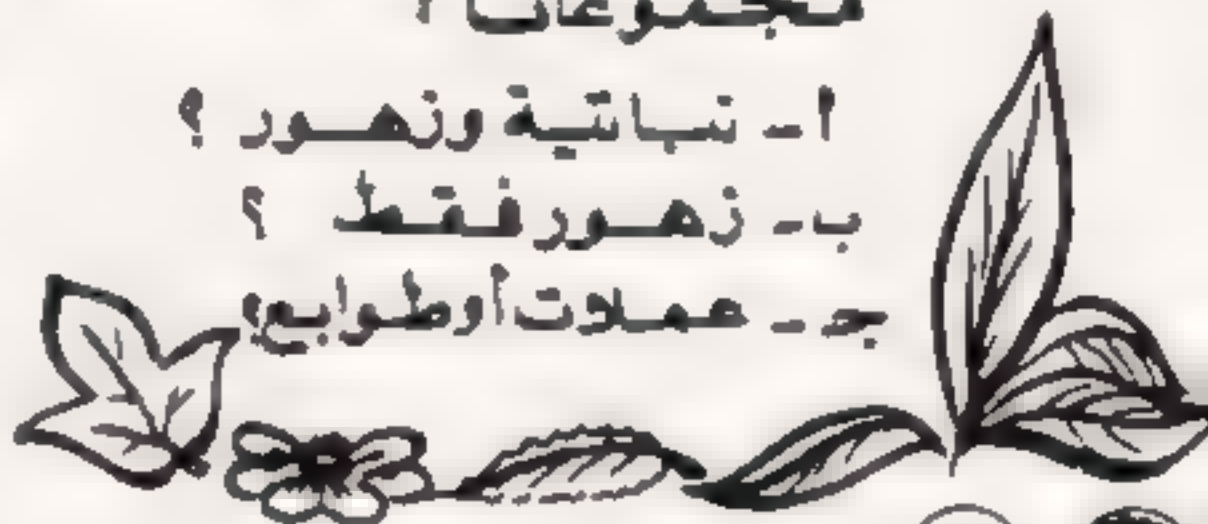 مجموعات ؟
أ - نباتية وزهور ؟
ب - زهور فقط ؟
جـ - عملات أو طوابع؟